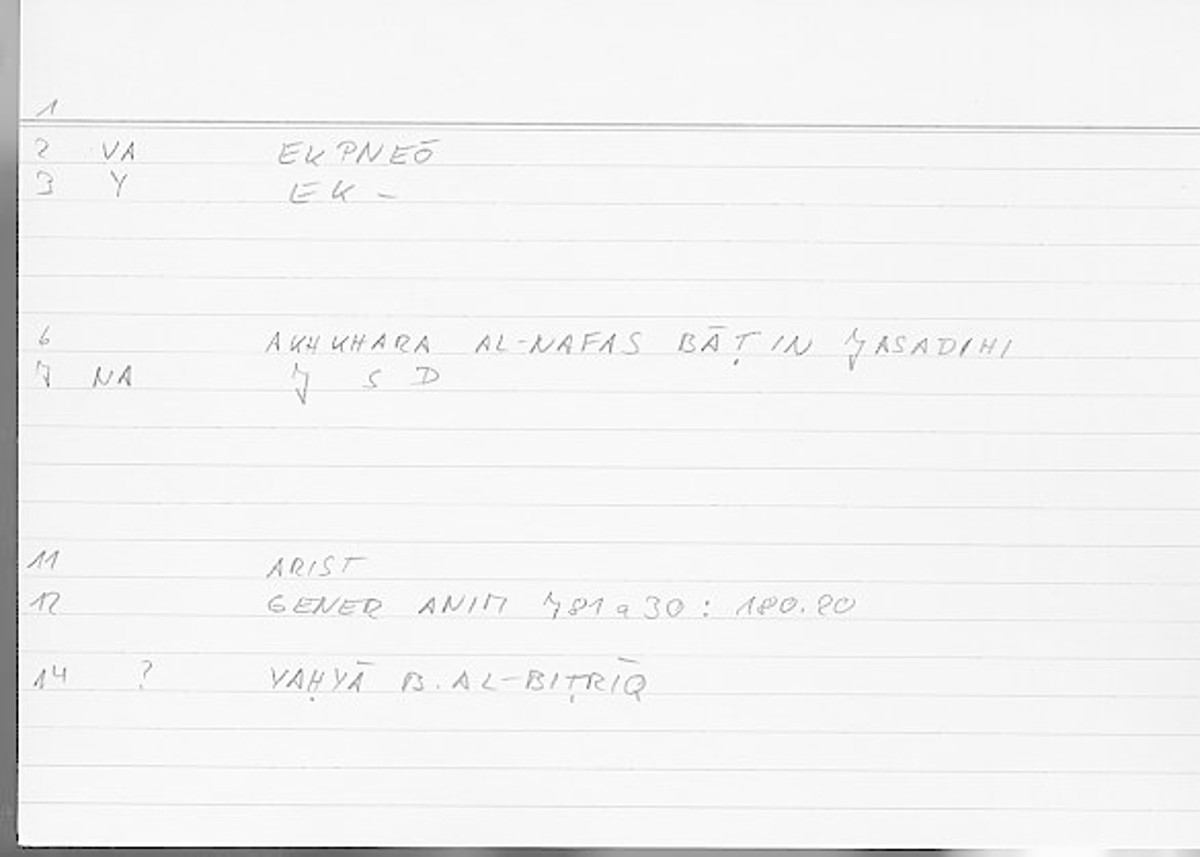 1
2 VA EKPNEŌ
3 Y EK -
6 AKHKHARA AL-NAFAS BĀṬIN JASADIHI
7 NA J S D
11 ARIST
12 GENER ANIM 781a30 : 180.20
14 ? YAḤYĀ B. AL-BIṬRĪQ